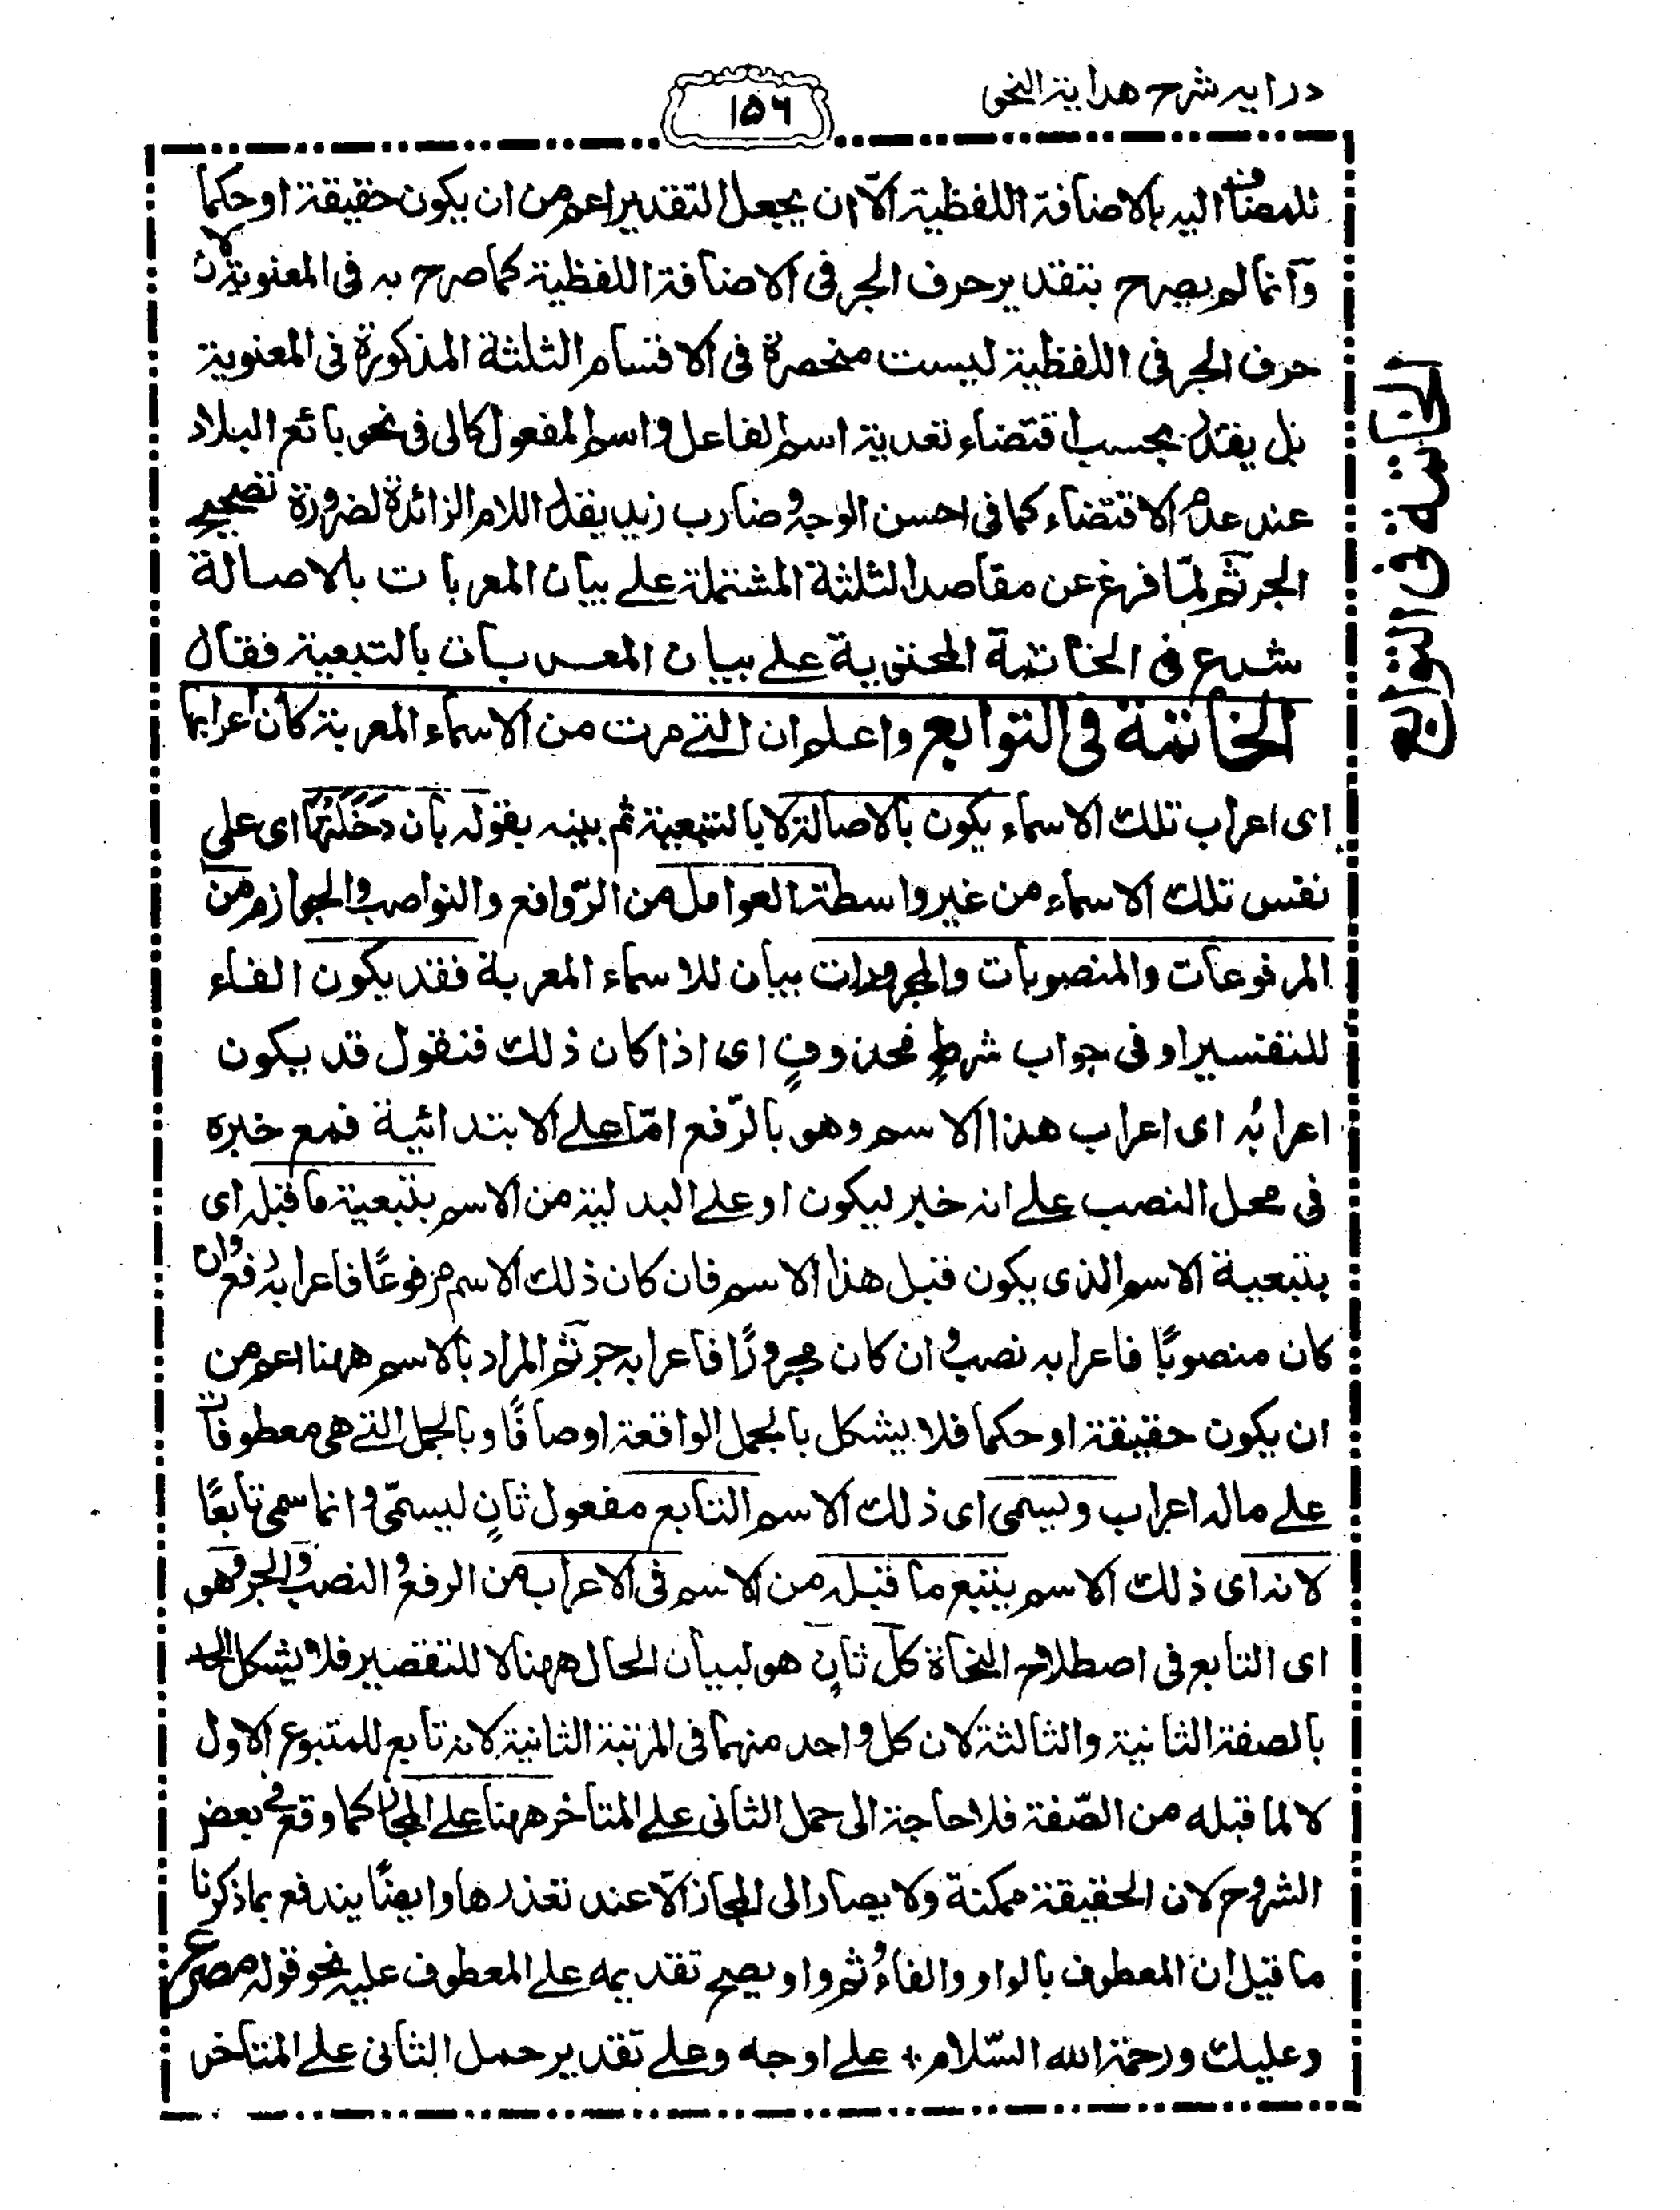 درايه شرح هداية النحو
١٥٦
للمضاف اليه بالاضافة اللفظية الّا ان يجعل التقدير اعم من ان يكون حقيقة او حكما
وَانما لم يصرح بتقدير حرف الجر فى الاضافة اللفظية كما صرح به فى المعنوية لان
حرف الجر فى اللفظية ليست منحصرة فى الاقسام الثلثة المذكورة فى المعنوية
بل يقدر بحسب اقتضاء تعدية اسم الفاعل و اسم المفعول كالى فى نحو بائع البلاد
عند عدم الاقتضاء كما فى احسن الوجه و ضارب زيد يقدر اللام الزائدة لضرورة تصحيح
الجر ثم لمّا فرغ عن مقاصد الثلثة المشتملة على بيان المعربات بالاصالة
شرع فى الخاتمة المحتوية على بيان المعربات بالتبعية فقال
الخاتمة فى التوابع واعلم ان التى مرت من الاسماء المعربة كان اعرابها
اى اعراب تلك الاسماء يكون بالاصالة لا بالتبعية ثم بينه بقوله بأن دَخَلَتْهَا اى على
نفس تلك الاسماء من غير واسطة العوامل من الرّوافع والنواصب والجوازم من
المرفوعات والمنصوبات والمجرورات بيان للاسماء المعربة فقد يكون الفاء
للتفسير او فى جواب شرطٍ محذوفٍ اى اذا كان ذلك فنقول قد يكون
اعرابُه اى اعراب هذا الاسم وهو بالرّفع امّا على الابتدائية فمع خبره
فى محل النصب على انه خبر ليكون او على البدلية من الاسم بتبعية ما قبله اى
بتبعية الاسم الذى يكون قبل هذا الاسم فان كان ذلك الاسم مرفوعًا فاعرابه رفع و ان
كان منصوبًا فاعرابه نصب و ان كان مجرورًا فاعرابه جر ثم المراد بالاسم ههنا اعم من
ان يكون حقيقة او حكما فلا يشكل بالجمل الواقعة اوصافًا و بالجمل التى هى معطوفات
على ماله اعراب ويسمى اى ذلك الاسم التابع مفعول ثانٍ ليسمّى و انما سمى تابعًا
لانه اى ذلك الاسم يتبع ما قبله من الاسم فى الاعراب من الرفع و النصب والجر وهو
اى التابع فى اصطلاح النحاة كلّ ثانٍ هو لبيان الحال ههنا لا للتقصير فلا يشكل الحد
بالصفة الثانية والثالثة لان كل واحد منهما فى المرتبة الثانية لانه تابع للمتبوع الاول
لا لما قبله من الصّفة فلا حاجة الى حمل الثانى على المتاخر ههنا على المجاز كما وقع فى بعض
الشروح لان الحقيقة ممكنة ولا يصار الى المجاز الّا عند تعذرها وايضًا يندفع بما ذكرنا
ما قيل ان المعطوف بالواو والفاء و ثم و او يصح تقديمه على المعطوف عليه نحو قوله مصرع
وعليك ورحمة الله السّلام + على اوجه وعلى تقدير حمل الثانى على المتاخر
الخاتمة فى التوابع